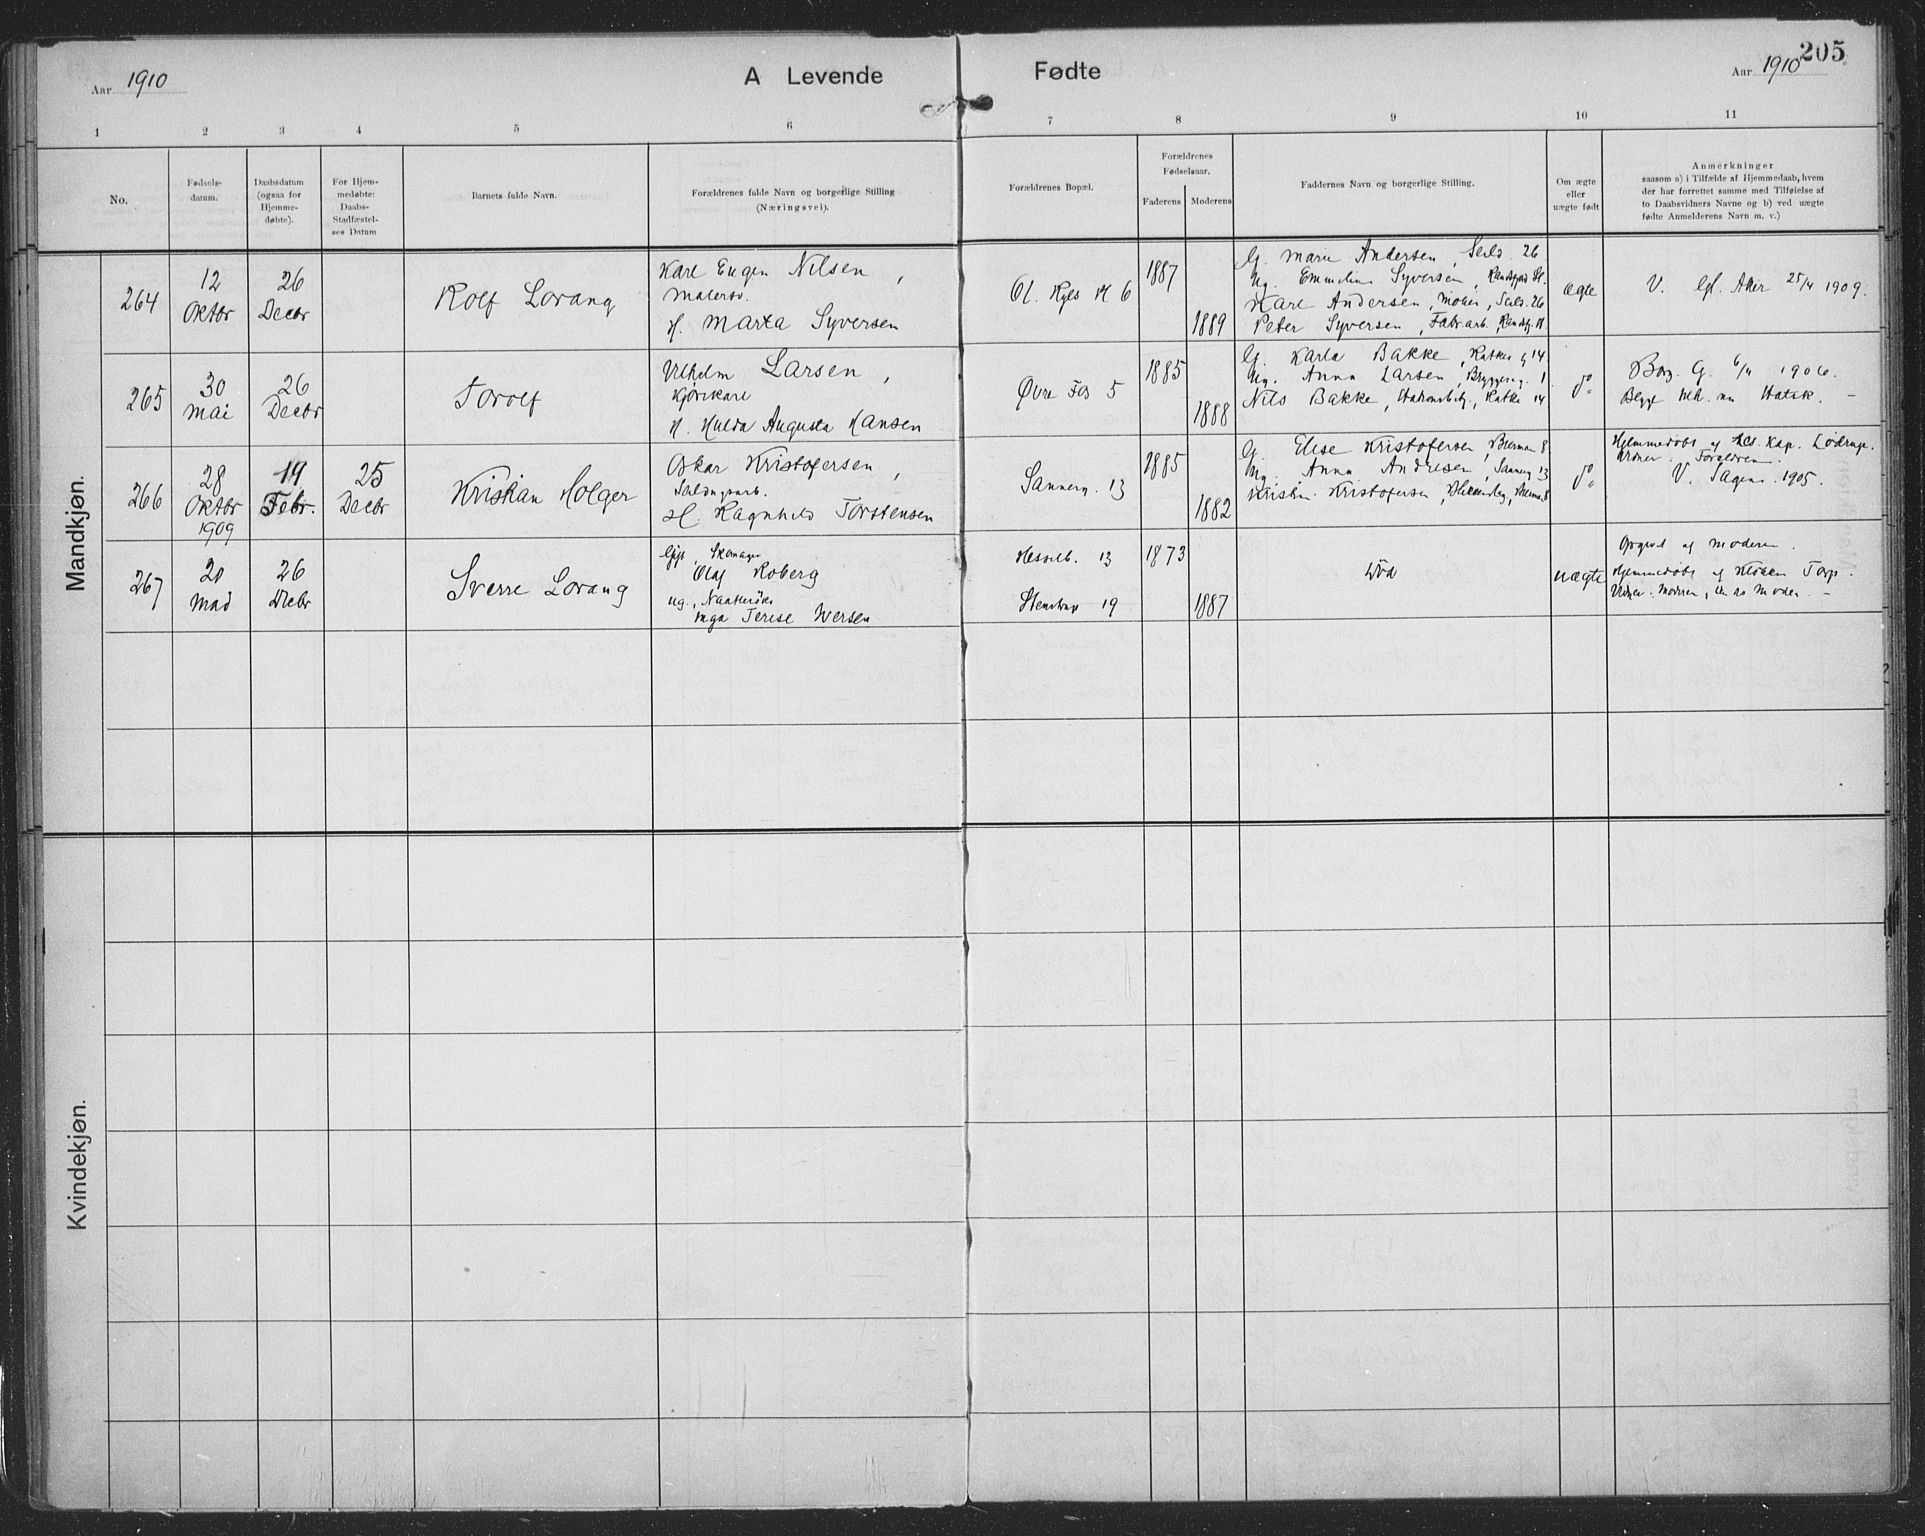 205
Aar 1910
A Levende
Fødte
Aar 1910
1 2 3 4 5 6 7 8 9 10 11
No.
Fødsels-
datum.
Daabsdatum
(ogsaa for
Hjemme-
døbte).
For Hjem-
medøbte:
Daabs-
Stadfæstel-
ses Datum
Barnets fulde Navn.
Forældrenes fulde Navn og borgerlige Stilling
(Næringsvei).
Forældrenes Bopæl.
Forældrenes
Fødselsaar.
Faderens
Moderens
Faddernes Navn og borgerlige Stilling.
Om ægte
eller
uægte født
Anmerkninger
saasom a) i Tilfælde af Hjemmedaab, hvem
der har forrettet samme med Tilføielse af
to Daabsvidners Navne og b) ved uægte
fødte Anmelderens Navn m. v.)
Mandkjøn.
264
12
Oktbr
26
Decbr
Rolf Lorang
Karl Eugen Nilsen,
Malersv.
H. Marta Syversen
Ol. Ryes Pl 6
1887
1889
G. Marie Andersen, Seild. 26
Ug. Emmeline Syversen,
Karl Andersen, Maler, Seild. 26
Peter Syversen, Fabrarb.
ægte
V. Gl. Aker 25/4 1909.
265
30
Mai
26
Decbr
Torolf
Vilhelm Larsen,
Kjørekarl
H. Hulda Augusta Hansen
Øvre Fos 5
1885
1888
G. Karla Bakke, Ratkes g 14
Ug. Anna Larsen, Bryggerig. 1
Nils Bakke, Ratke 14
do
Borg. G. 6/4 1906.
266
28
Oktbr
1909
19
Febr.
25
Decbr
Kristian Holger
Oskar Kristofersen,
H. Ragnhild Torstensen
Sannerg. 13
1885
1882
G. Elise Kristofersen, Bierman 8
Ug. Anna Andresen, Sannerg 13
Kristian Kristofersen,
do
Hjemmedøbt af res. kap. Lødrup.
Vidner: Forældren.
V. Sagene 1905.
267
20
Mai
26
Decbr
Sverre Lorang
Gift, Skomager
Olaf Roberg
ug.,
Inga Terese Iversen
Hesselb. 13
Stenstrup 19
1873
1887
uægte
Opgivet af Moderen.
Hjemmedøbt af Klokker Torp.
Vidner: Moderen,
Kvindekjøn.